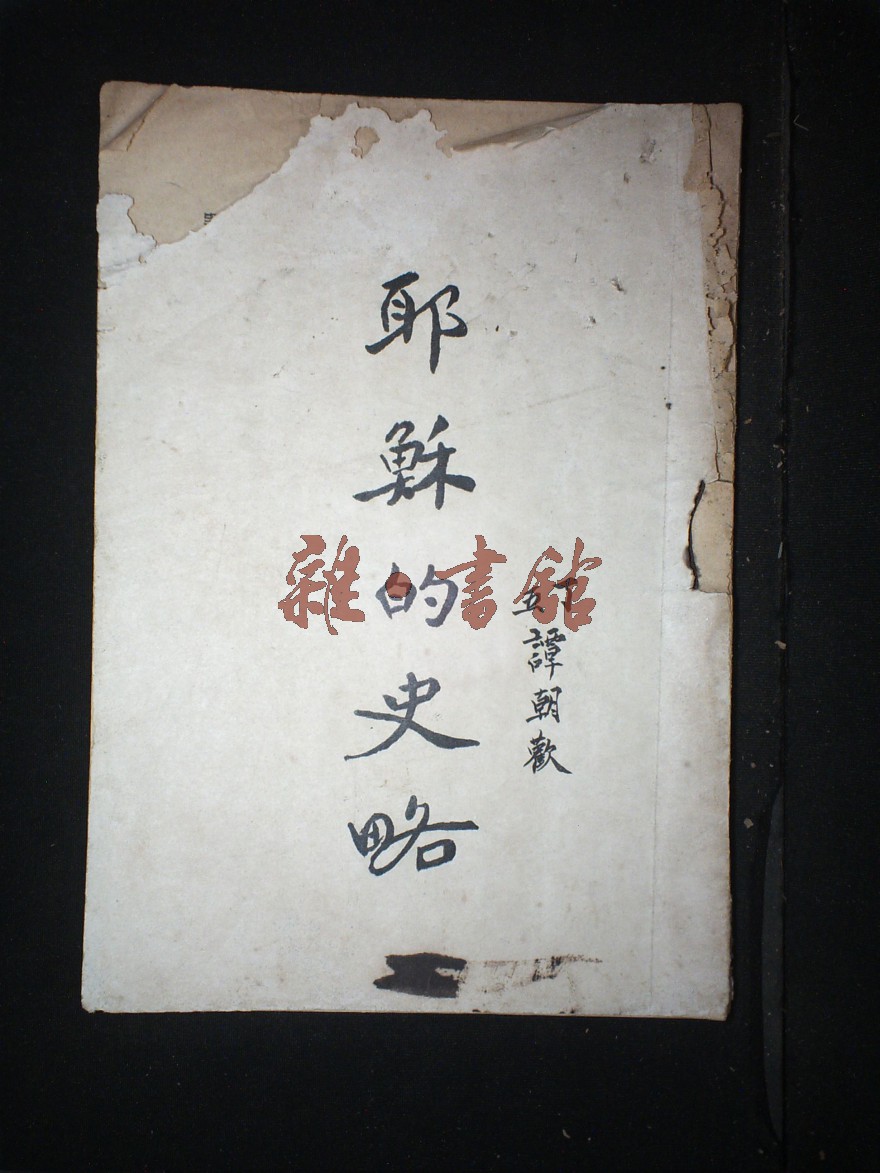 耶穌的史略
五丁
譚朝歡
雜·書館